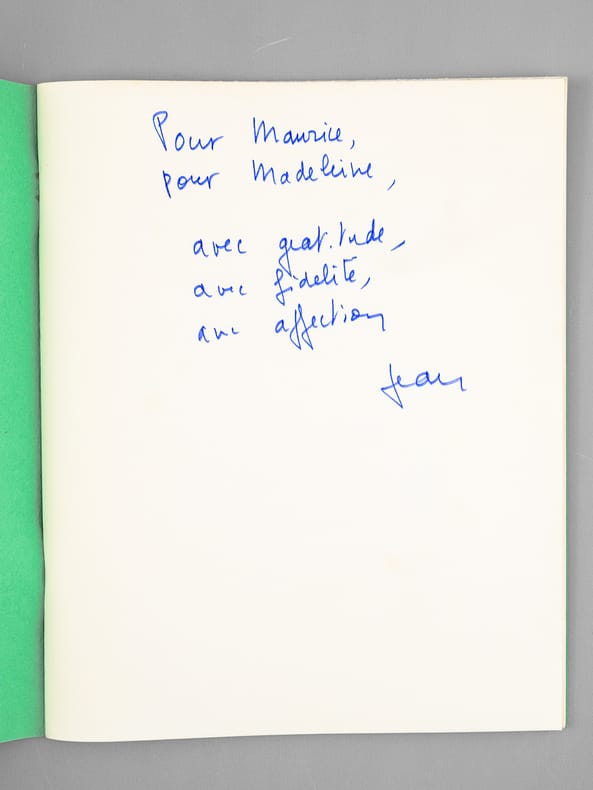 Pour Maurice,
pour Madeleine,
avec gratitude,
avec fidelité,
avec affection
Jean